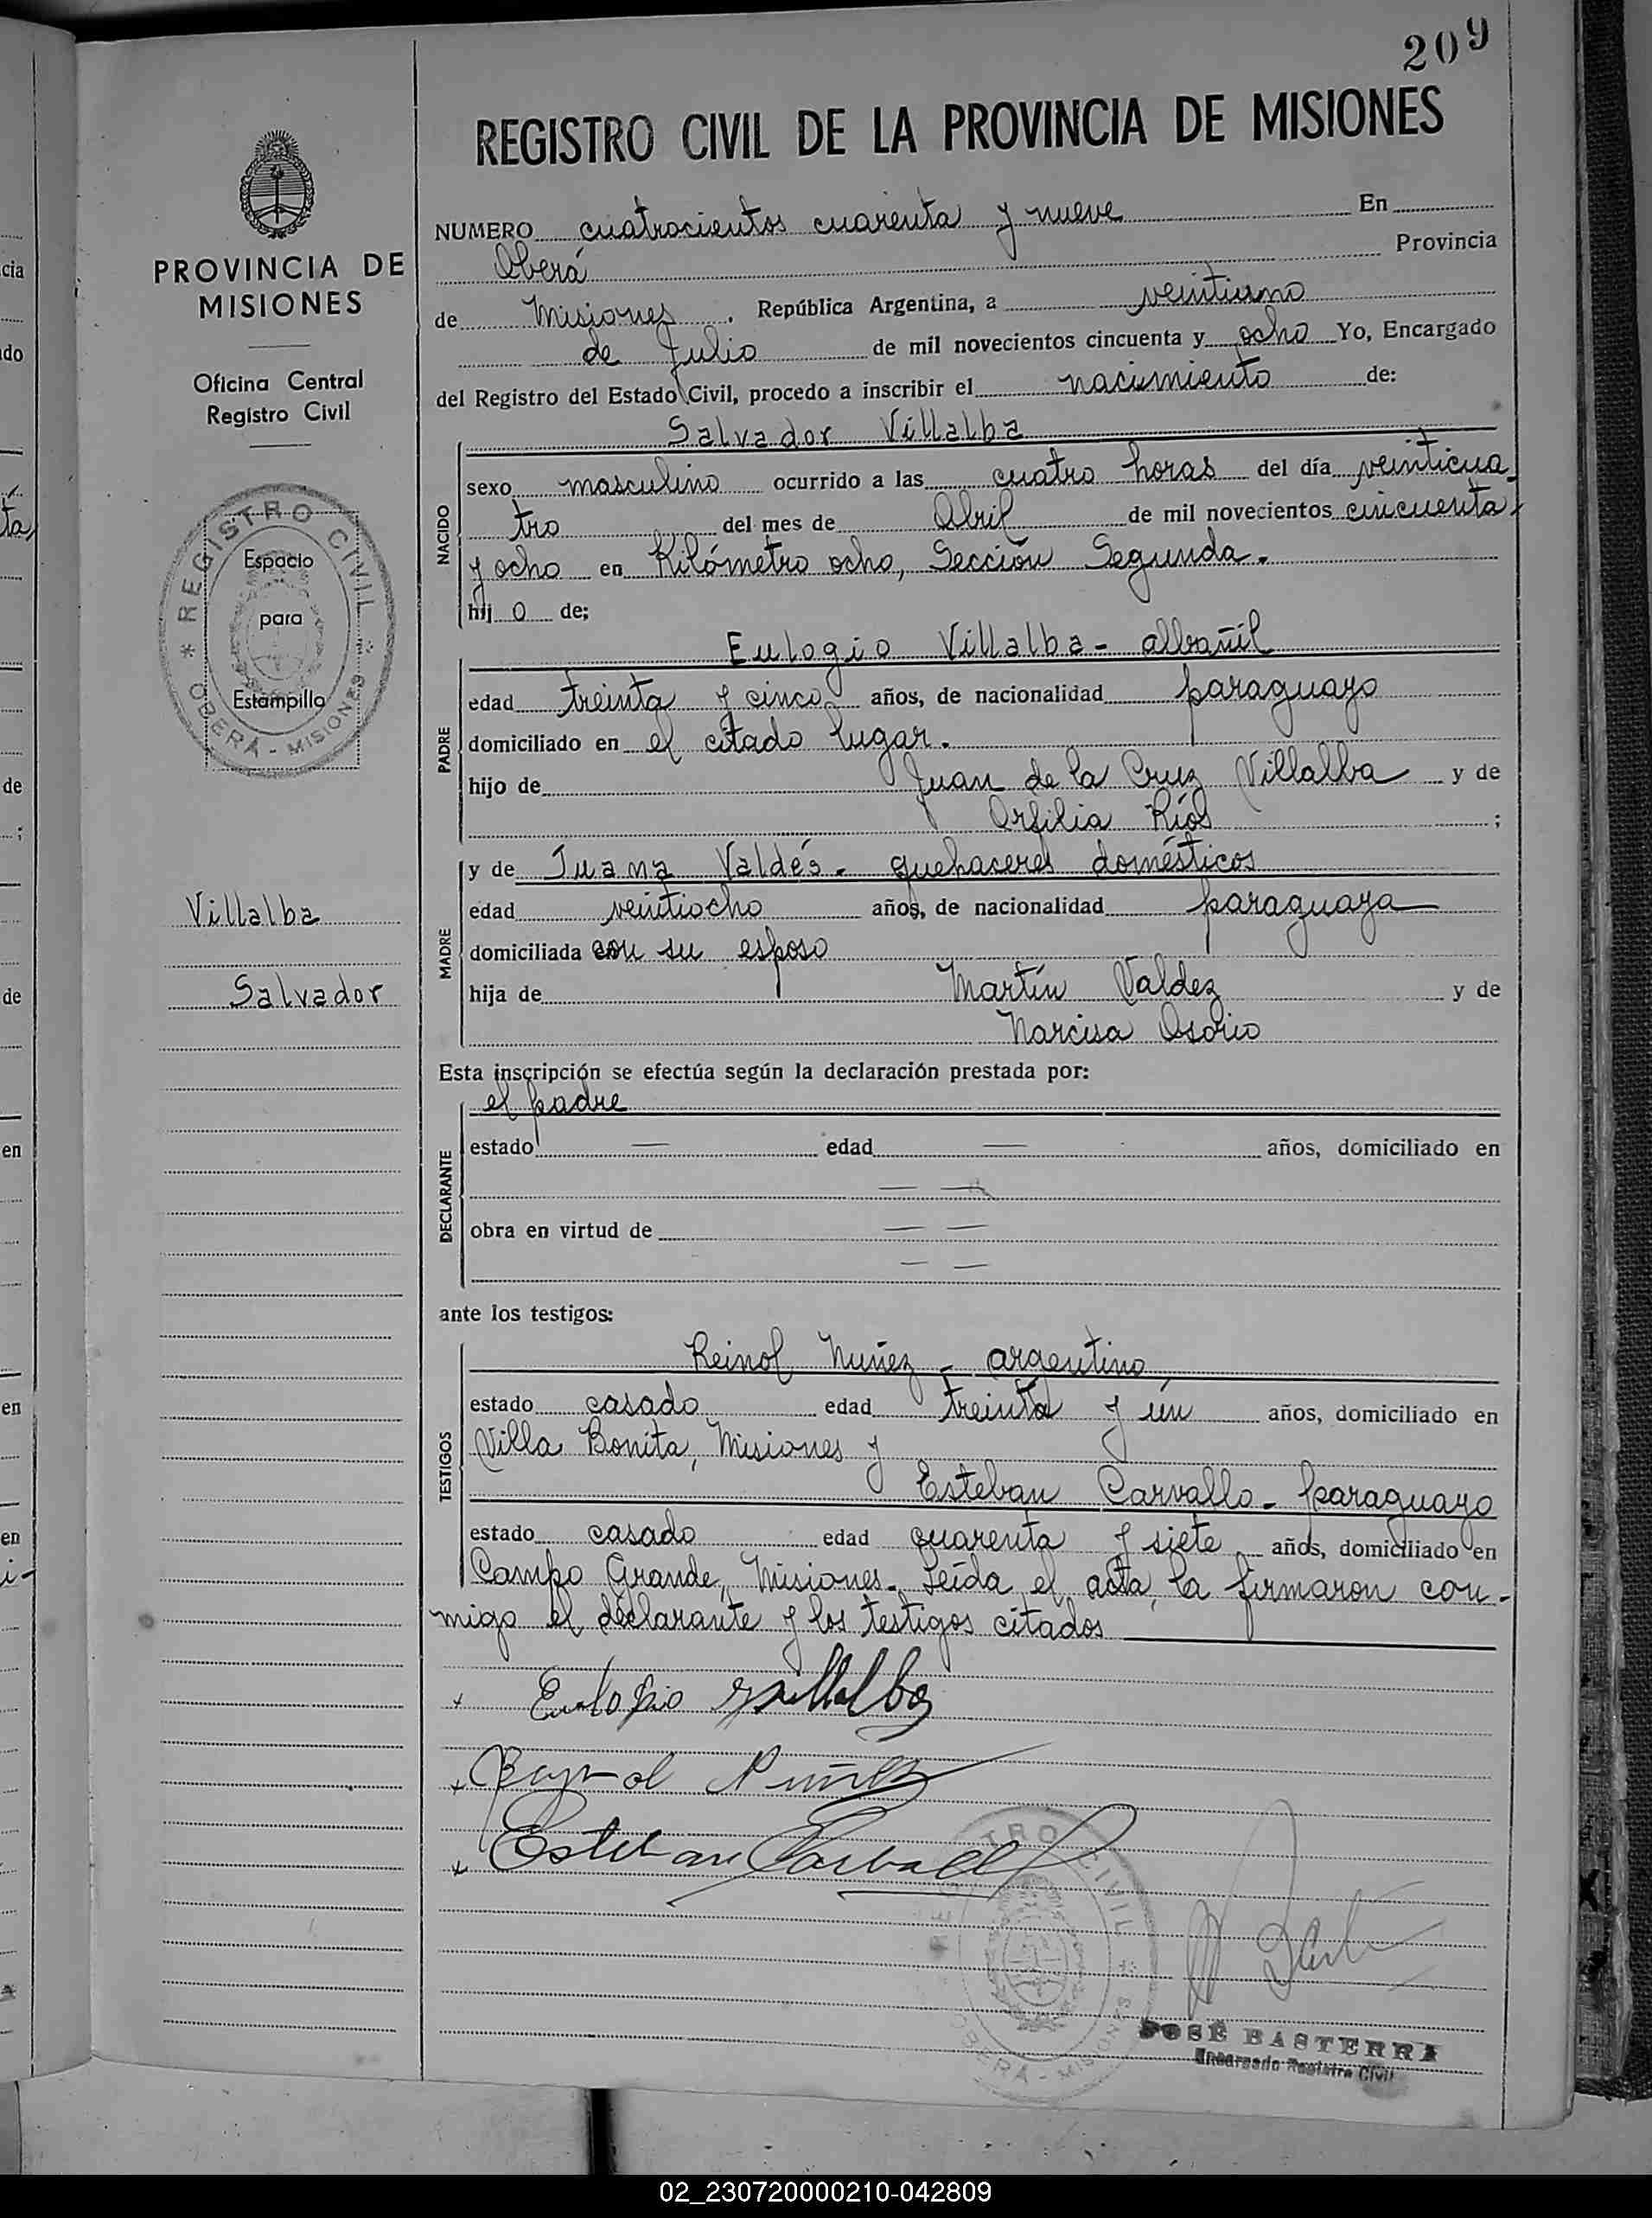 209
REGISTRO CIVIL DE LA PROVINCIA DE MISIONES
PROVINCIA DE
MISIONES
Oficina Central
Registro Civil
REGISTRO CIVIL
OBERÁ - MISIONES
Espacio
para
Estampilla
Villalba
Salvador
NUMERO cuatrocientos cuarenta y nueve En
Oberá Provincia
de Misiones, República Argentina, a veintiuno
de Julio de mil novecientos cincuenta y ocho Yo, Encargado
del Registro del Estado Civil, procedo a inscribir el nacimiento de:
Salvador Villalba
NACIDO
sexo masculino ocurrido a las cuatro horas del día veinticua
tro del mes de Abril de mil novecientos cincuenta
y ocho en Kilómetro ocho, Sección Segunda.
hij o de;
Eulogio Villalba - albañil
PADRE
edad treinta y cinco años, de nacionalidad paraguayo
domiciliado en el citado lugar.
hijo de Juan de la Cruz Villalba y de
Orfilia Ríos ;
y de Juana Valdés - quehaceres domésticos
MADRE
edad veintiocho años, de nacionalidad paraguaya
domiciliada con su esposo
hija de Martín Valdez y de
Narcisa Osorio
Esta inscripción se efectúa según la declaración prestada por:
el padre
DECLARANTE
estado — edad — años, domiciliado en
— —
obra en virtud de — —
— —
ante los testigos:
Reinol Nuñez - argentino
TESTIGOS
estado casado edad treinta y un años, domiciliado en
Villa Bonita, Misiones y
Esteban Carvallo - paraguayo
estado casado edad cuarenta y siete años, domiciliado en
Campo Grande, Misiones. Leída el acta, la firmaron con-
migo el declarante y los testigos citados
Eulogio Villalba
Nuñez
Esteban Carballo
REGISTRO CIVIL
OBERÁ - MISIONES
JOSÉ BASTERRA
Encargado Registro Civil
cia
do
ta,
de
;
de
en
en
en
i-
02_230720000210-042809